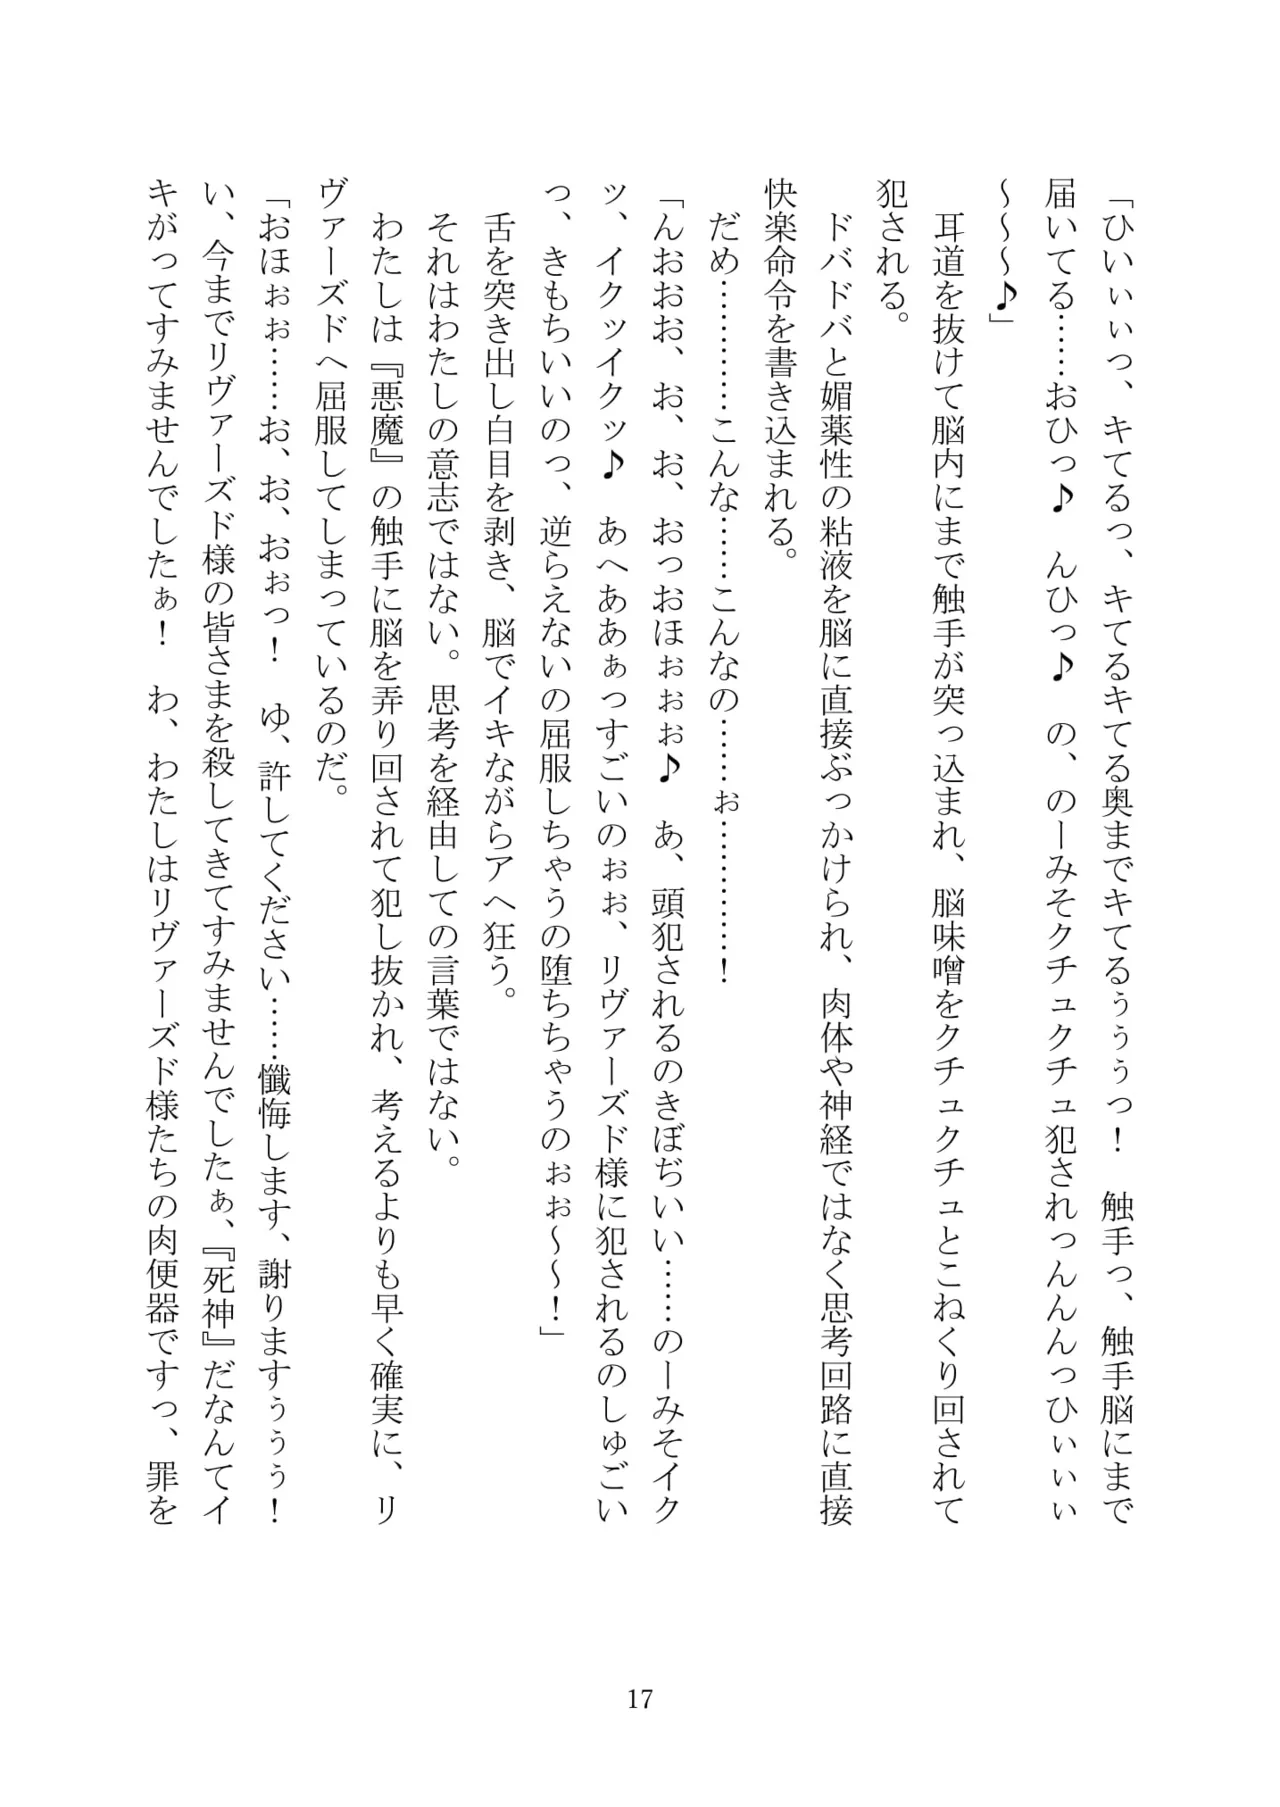 「ひいぃぃっ、キてるっ、キてるキてる奥までキてるぅぅぅっ！　触手っ、触手脳にまで
届いてる……おひっ♪　んひっ♪　の、のーみそクチュクチュ犯されっんんんっひぃぃぃ
～～～♪」
　耳道を抜けて脳内にまで触手が突っ込まれ、脳味噌をクチュクチュとこねくり回されて
犯される。
　ドバドバと媚薬性の粘液を脳に直接ぶっかけられ、肉体や神経ではなく思考回路に直接
快楽命令を書き込まれる。
　だめ…………こんな……こんなの……ぉ…………！
「んおおお、お、お、おっおほぉぉぉ♪　あ、頭犯されるのきぼぢいい……のーみそイク
ッ、イクッイクッ♪　あへああぁっすごいのぉぉ、リヴァーズド様に犯されるのしゅごい
っ、きもちいいのっ、逆らえないの屈服しちゃうの堕ちちゃうのぉぉ～～！」
　舌を突き出し白目を剥き、脳でイキながらアヘ狂う。
　それはわたしの意志ではない。思考を経由しての言葉ではない。
　わたしは『悪魔』の触手に脳を弄り回されて犯し抜かれ、考えるよりも早く確実に、リ
ヴァーズドへ屈服してしまっているのだ。
「おほぉぉ……お、お、おぉっ！　ゆ、許してください……懺悔します、謝りますぅぅぅ！
い、今までリヴァーズド様の皆さまを殺してきてすみませんでしたぁ、『死神』だなんてイ
キがってすみませんでしたぁ！　わ、わたしはリヴァーズド様たちの肉便器ですっ、罪を
17